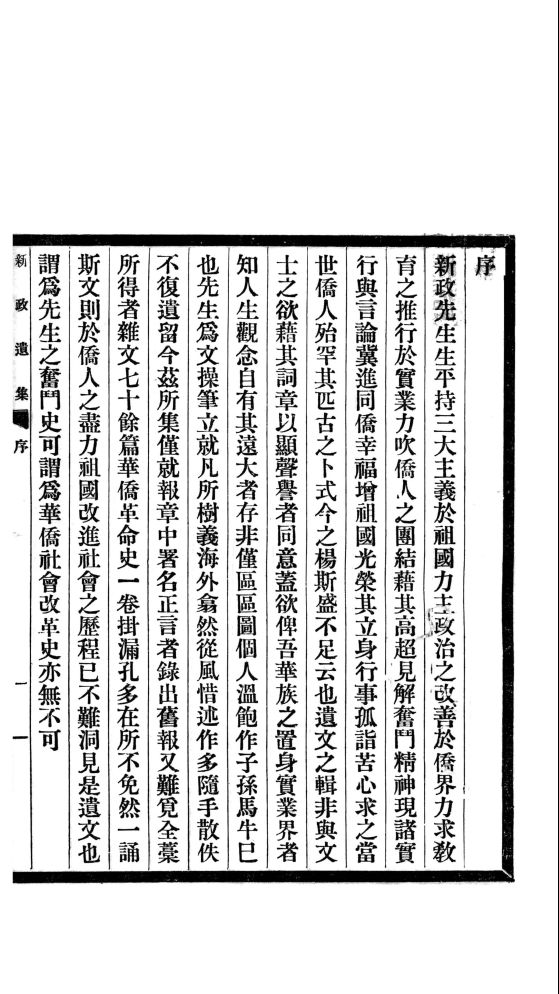 序
新政先生生平持三大主義於祖國力主政治之改善於僑界力求敎
育之推行於實業力吹僑人之團結藉其高超見解奮鬥精神現諸實
行與言論冀進同僑幸福增祖國光榮其立身行事孤詣苦心求之當
世僑人殆罕其匹古之卜式今之楊斯盛不足云也遺文之輯非與文
士之欲藉其詞章以顯聲譽者同意蓋欲俾吾華族之置身實業界者
知人生觀念自有其遠大者存非僅區區圖個人溫飽作子孫馬牛已
也先生爲文操筆立就凡所樹義海外翕然從風惜述作多隨手散佚
不復遺留今茲所集僅就報章中署名正言者錄出舊報又難覓全藁
所得者雜文七十餘篇華僑革命史一卷掛漏孔多在所不免然一誦
斯文則於僑人之盡力祖國改進社會之歷程已不難洞見是遺文也
謂爲先生之奮鬥史可謂爲華僑社會改革史亦無不可
新政遺集 序 一